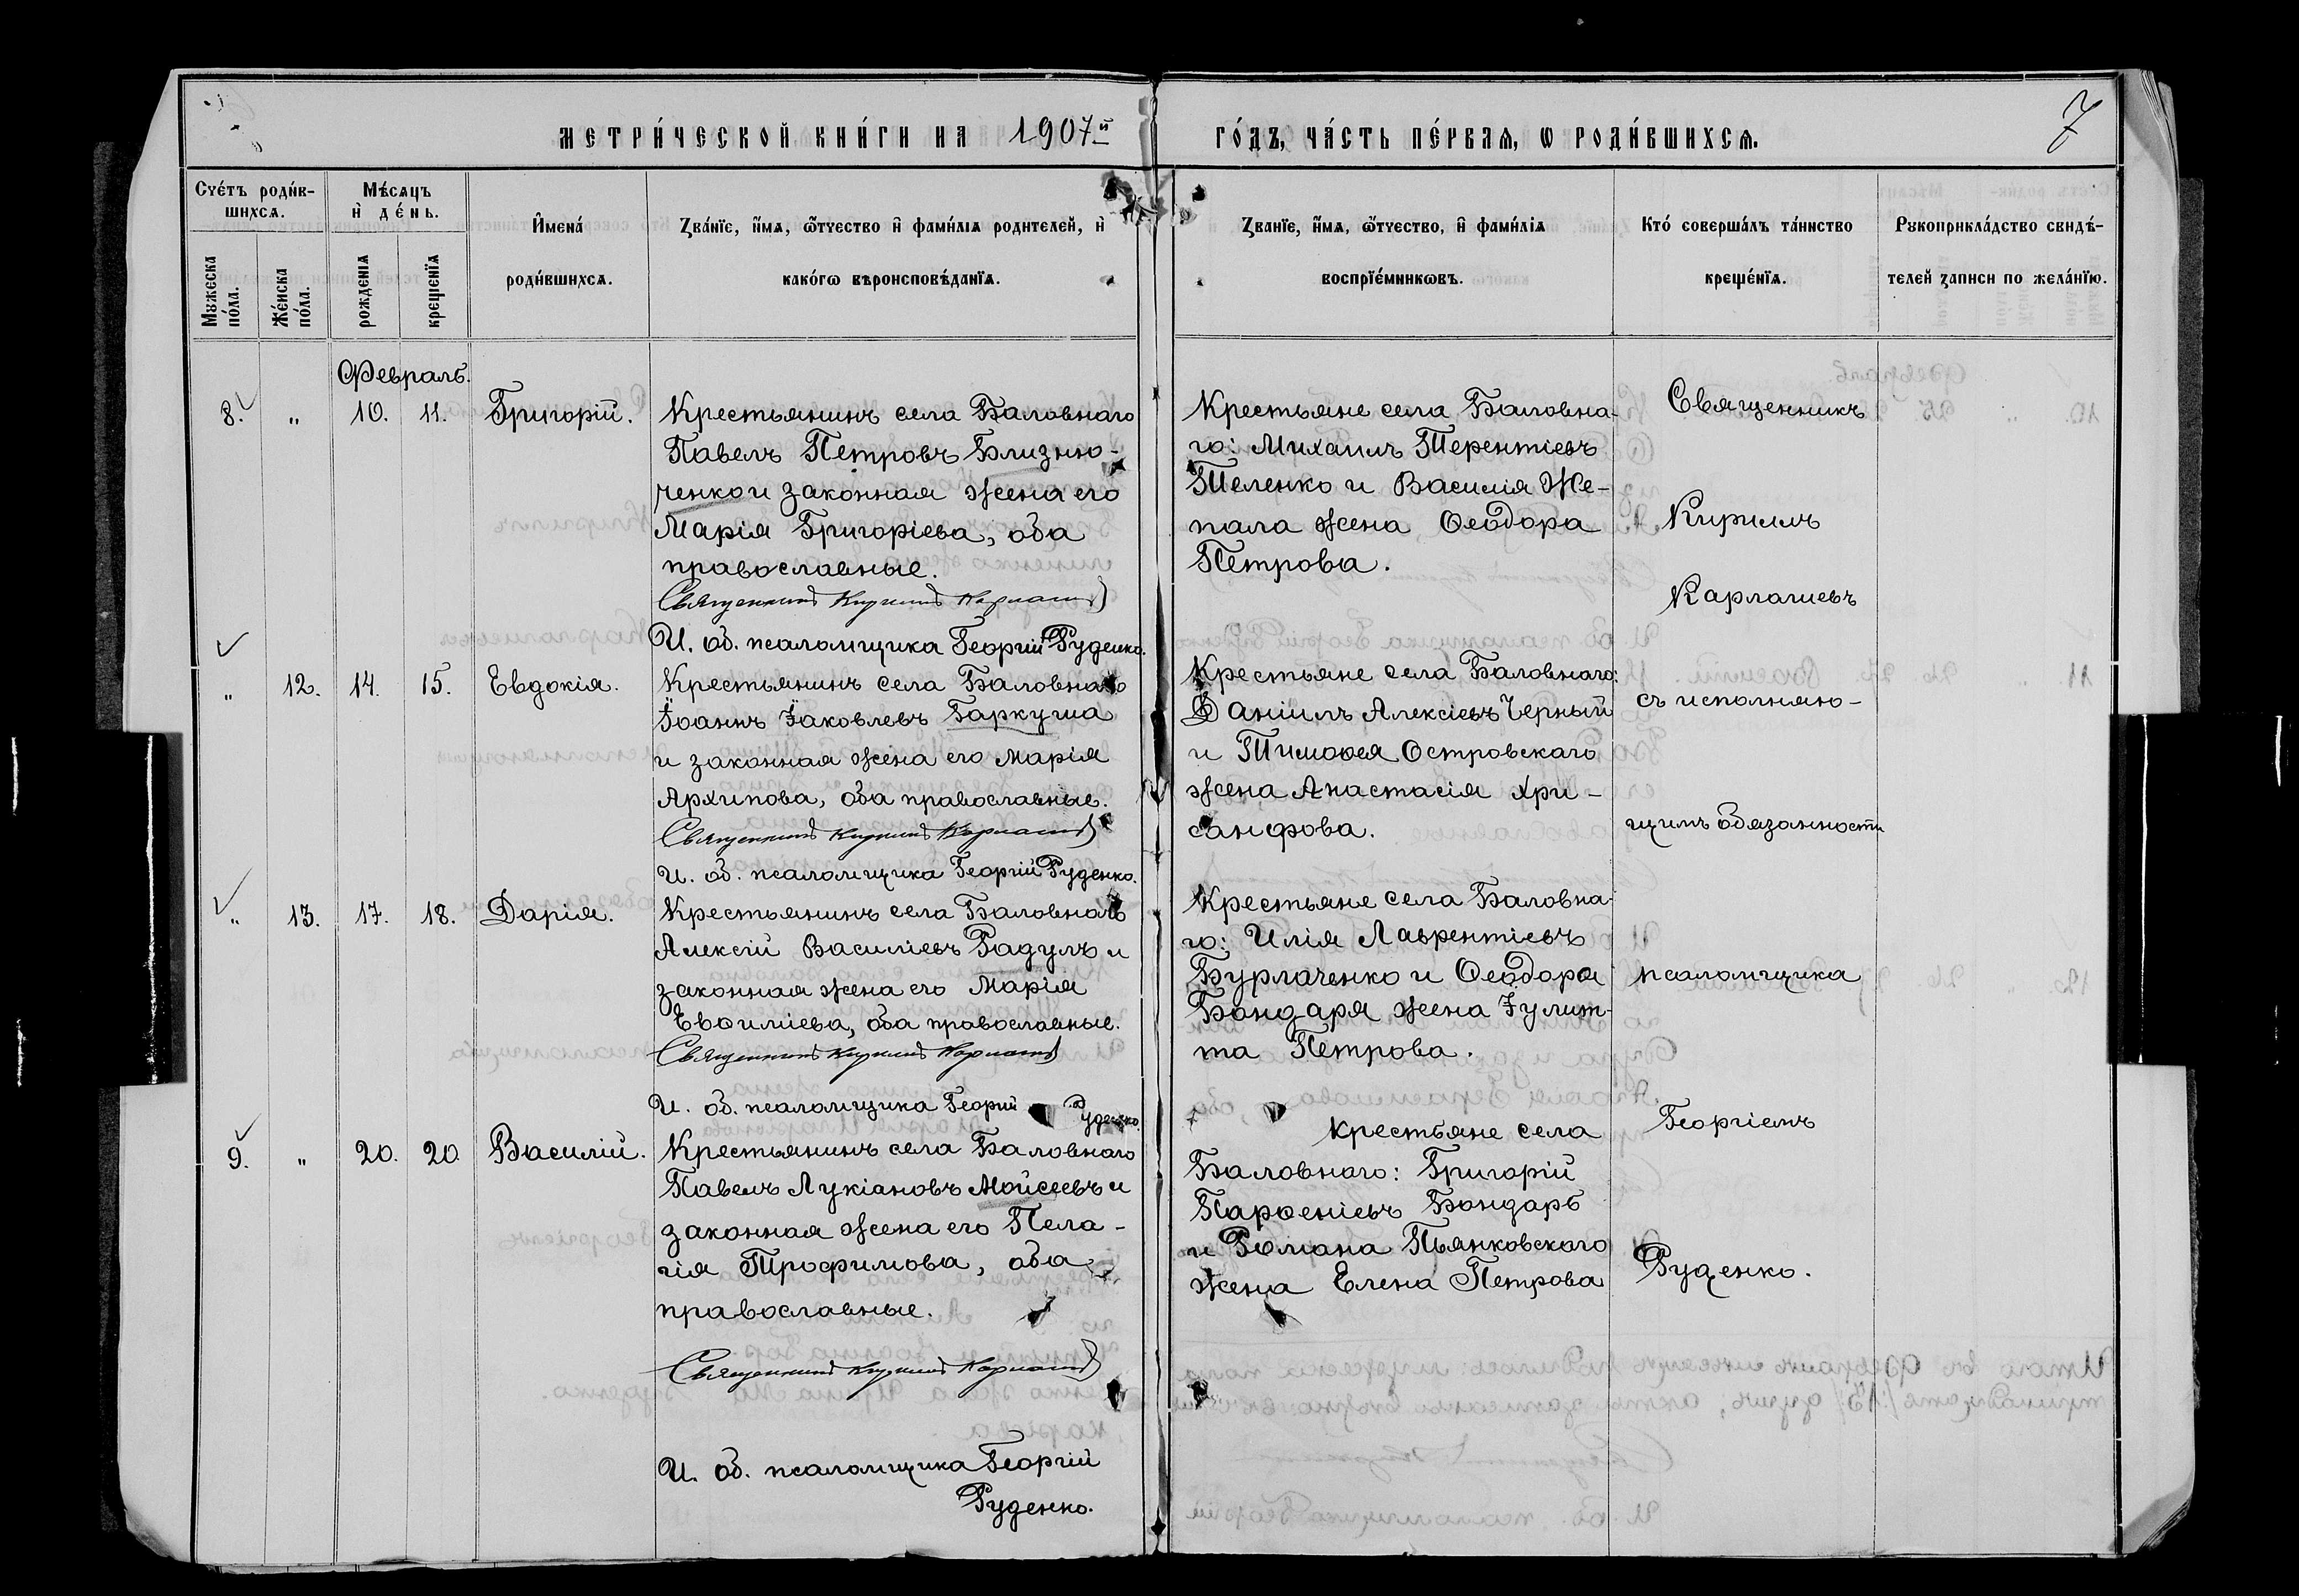 МЕТРИ́ЧЕСКОЙ КНИ́ГИ НА 1907й
ГО́ДЪ, ЧА́СТЬ ПЕ́РВАѦ, Ѡ РОДИ́ВШИХСѦ.
7
Счéтъ роди́в-
шихсѧ.
Мужеска
по́ла.
Же́нска
по́ла.
Мѣ́сѧцъ
и҆ де́нь.
рожденіѧ
крещенїѧ
И҆мена́
роди́вшихсѧ.
Зва́нїе, и҆́мѧ, ѻ҆́тчество и҆ фами́лїѧ родителей, и҆
како́гѡ вѣроисповѣ́данїѧ.
Званїе, и҆́мѧ, ѻ҆́тчество, и҆ фами́лїѧ
воспрїе́мникѡвъ.
Кто́ соверша́лъ та́инство
креще́нїѧ.
Рукоприкла́дство свидѣ́-
телей записи по жела́нїю.
Февраль.
8. " 10. 11. Григорій.
Крестьянинъ села Баловнаго
Павелъ Петровъ Близню-
ченко и законная жена его
Марія Григоріева, оба
православные.
Священникъ Кириллъ Карпаш
И. об. псаломщика Георгій Руденко.
Крестьяне села Баловна-
го: Михаилъ Терентіевъ
Теленко и Василія Же-
пала жена Ѳеодора
Петрова.
" 12. 14. 15. Евдокія.
Крестьянинъ села Баловнаго
Іоаннъ Іаковлевъ Гаркуша
и законная жена его Марія
Архипова, оба православные.
Священникъ Кириллъ Карпаш
И. об. псаломщика Георгій Руденко.
Крестьяне села Баловнаго:
Даніилъ Алексіевъ Черный
и Тимоѳея Островскаго
жена Анастасія Хри-
санфова.
" 13. 17. 18. Дарія.
Крестьянинъ села Баловнаго
Алексій Василіевъ Радулъ и
законная жена его Марія
Евѳиміева, оба православные.
Священникъ Кириллъ Карпаш
И. об. псаломщика Георгій Руденко.
Крестьяне села Баловна-
го: Илія Лаврентіевъ
Бурлаченко и Ѳеодора
Бондаря жена Іулит-
та Петрова.
9. " 20. 20. Василій.
Крестьянинъ села Баловнаго
Павелъ Лукіановъ Мойсеевъ и
законная жена его Пела-
гія Трофимова, оба
православные.
Священникъ Кириллъ Карпаш
И. об. псаломщика Георгій
Руденко.
крестьяне села
Баловнаго: Григорій
Парѳеніевъ Бондарь
и Романа Пьянковскаго
жена Елена Петрова
Священникъ
Кириллъ
Карпашевъ
съ исполняю-
щимъ обязанности
псаломщика
Георгіемъ
Руденко.